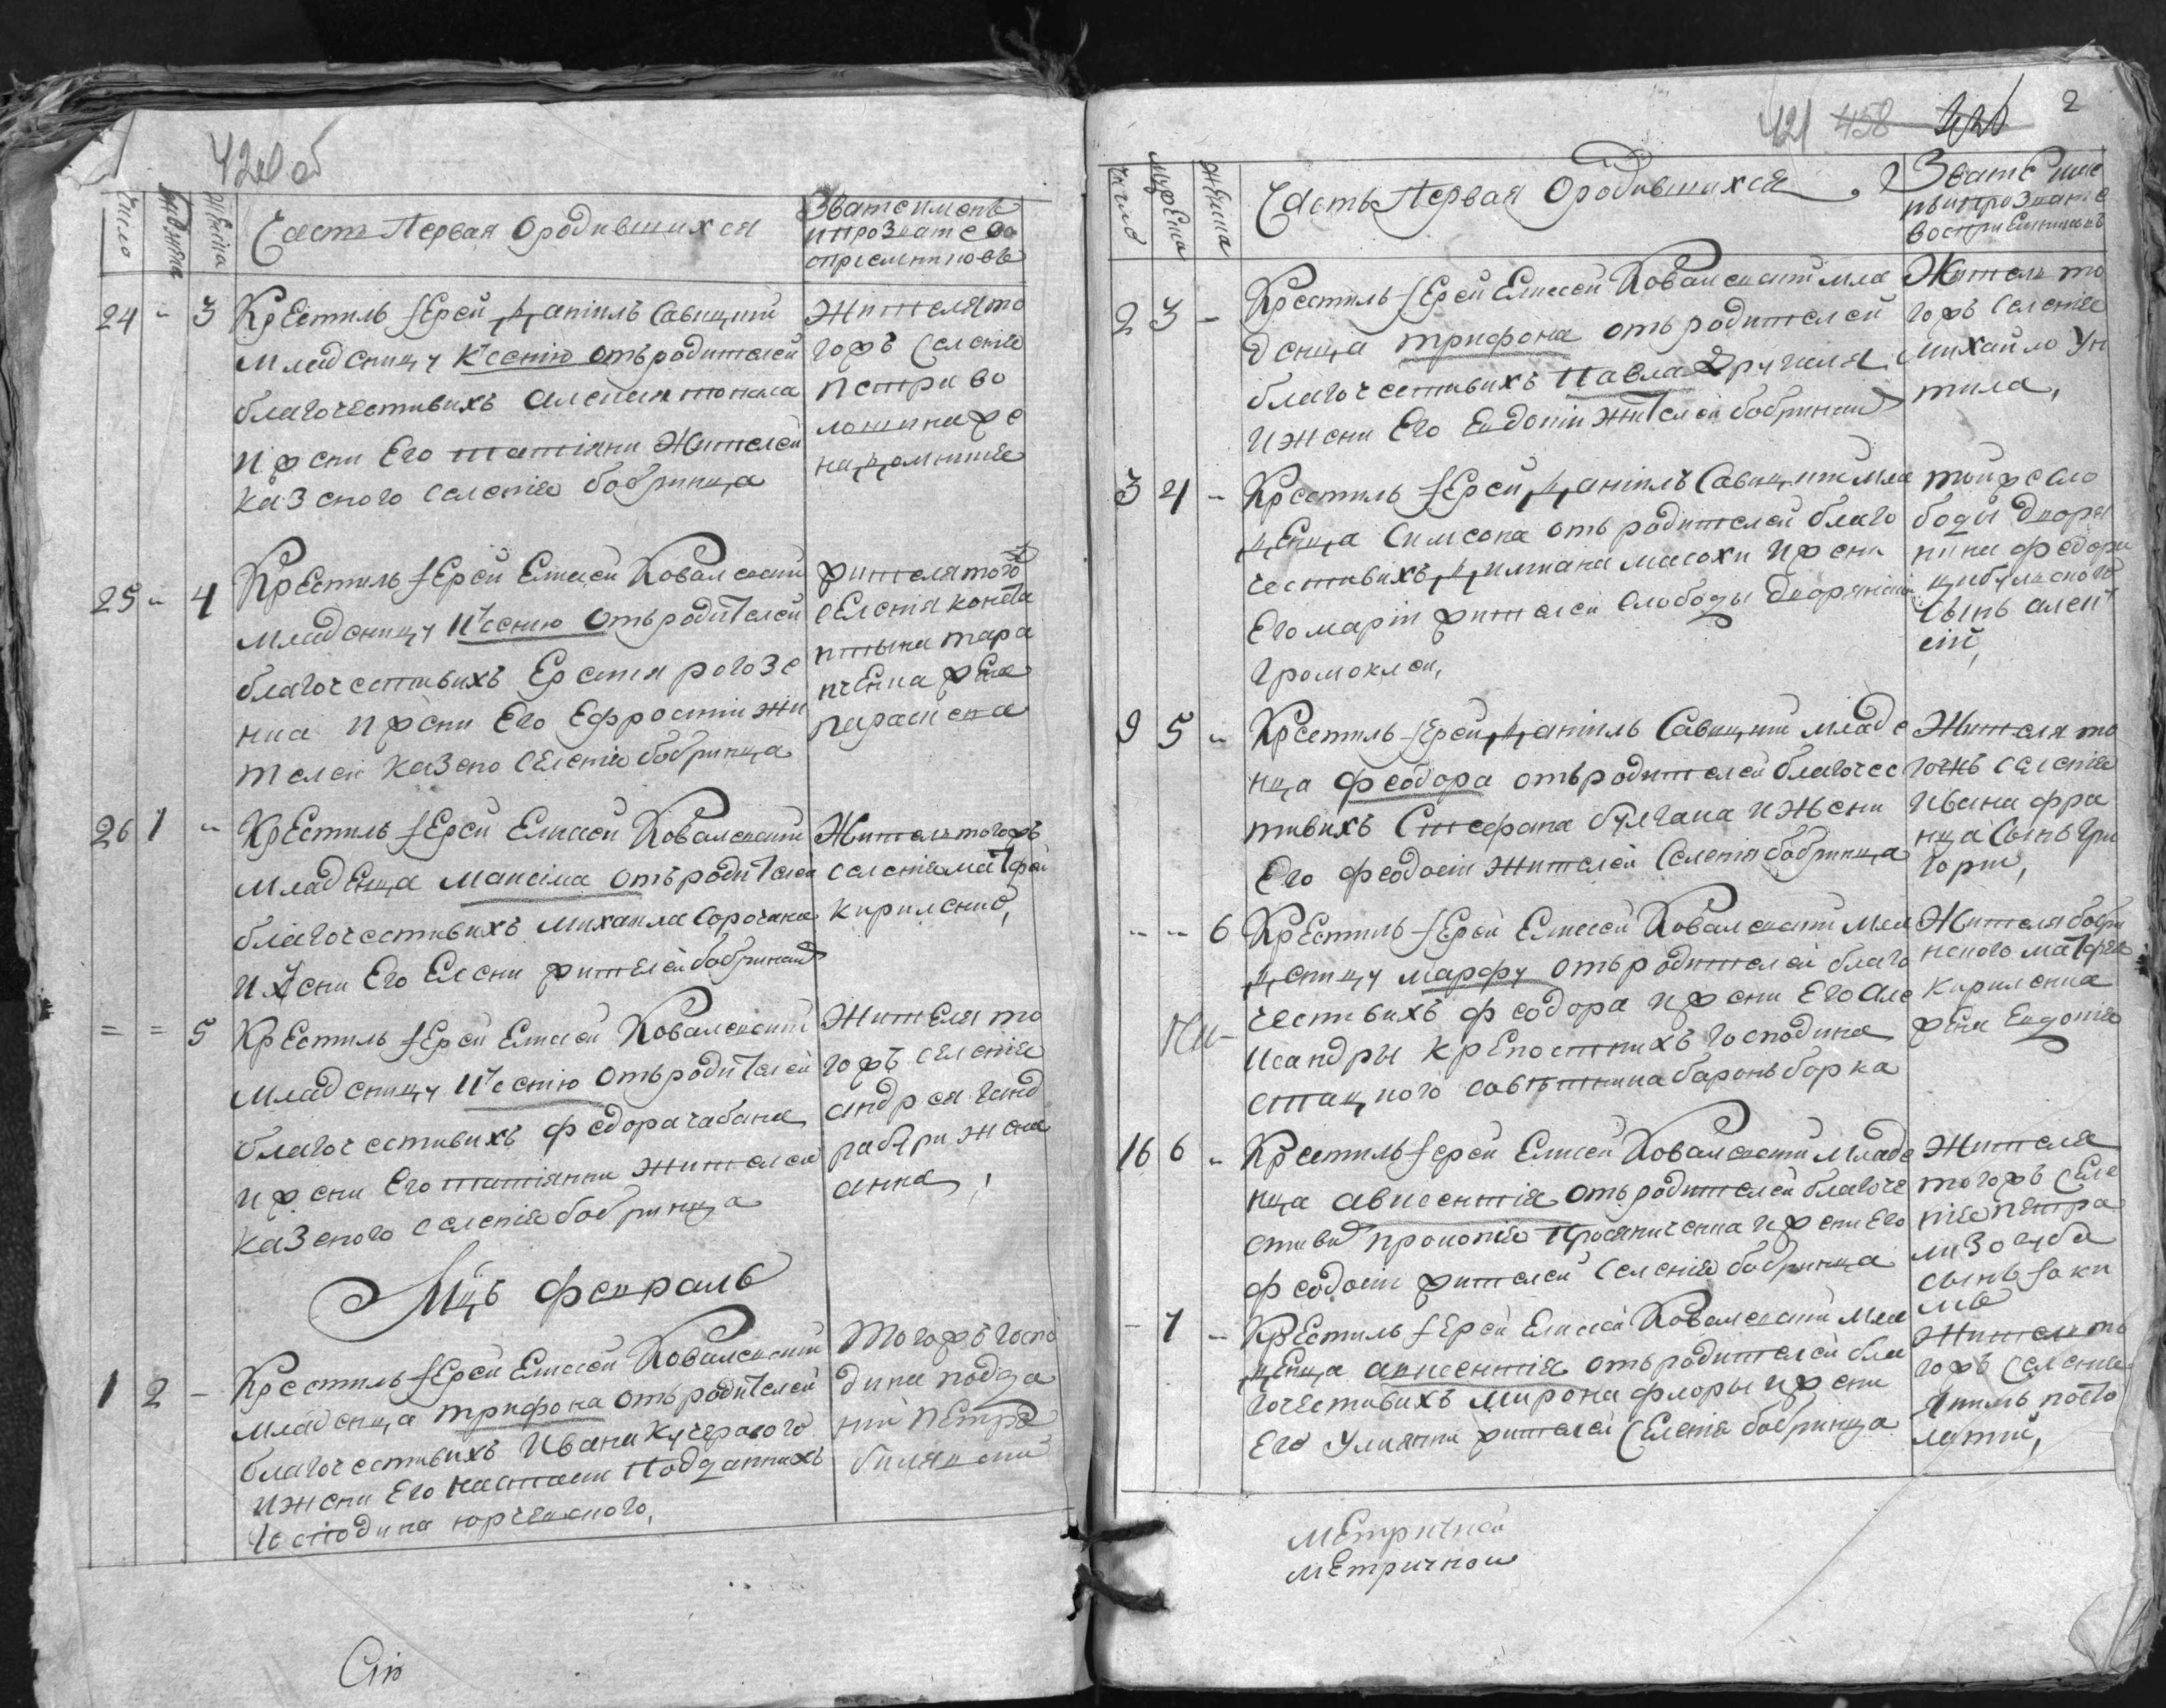 420 об
Число
мужеска
женска
Часть Первая О родившихся
Званіе именъ
и прозваніе во
спреемниковъ
24 - 3 Крестилъ Іерей Даніилъ Савицкий
Младеницу Ксенію отъ родителей
благочестивихъ
и жени Его Татіяни Жителей
казеного селенія бобринца
Жителя то
гожъ селенія
Петри во
лошина же
на Домникія
25 - 4 Крестилъ Іерей Елисей Ковалевский
младеницу Ксению Отъ родителей
благочестивихъ Ерстия рогозе
нка и жени Его Ефросинии жи
телей казено селенія бобринца
жителя того
селения конста
нтина тара
нченка жена
параскева
26 1 - Крестилъ Іерей Елисей Ковалевский
младенца Максіма отъ родителей
благочестивихъ михаила Сорочана
и жени Его Елени жителей бобринца
Житель тогожъ
селенія матфей
Кириленко,
= = 5 Крестилъ Іерей Елисей Ковалевский
Младеницу Ксенію Отъ родителей
благочестивихъ Федора чабана
и жени Его татіянни жителей
казеного селенія бобринца
Жителя то
гожъ селенія
андрея
жена
анна,
Мцъ Февраль
1 2 - Крестилъ Іерей Елисей Ковалевский
младенца трифона отъ родителей
благочестивихъ Ивана Кучерового
и жени Его Настасии Подданнихъ
Господина юрченского,
Тогожъ госпо
дина подда
ний Петра
билянский
421 458 2
Число
мужеска
женска
Часть Первая О родившихся
Званіе име
нъ и прозваніе
воспреемниковъ
2 3 - Крестилъ Іерей Елисей Ковалевский мла
денца трифона отъ родителей
благочестивихъ Павла Другаля
и жени Его Евдокіи жителей бобринца
Житель то
гожъ селенія
михайло Ун
тила,
3 4 - Крестилъ Іерей Даніилъ Савицкий мла
денца Симеона отъ родителей благо
честивихъ Димиана масохи и жени
Его маріи жителей Слободы дворянской
громоклеи,
тойже сло
боды дворя
нина федора
цибулского
сынъ алек
сій,
9 5 - Крестилъ Іерей Даніилъ Савицкий младе
нца феодора отъ родителей благочес
тивихъ Стефана булгана и жени
Его феодосіи жителей селения бобринца
Жителя то
гожъ селенія
Ивана фра
нца сынъ Гри
горій,
- - 6 Крестилъ Іерей Елисей Ковалевский мла
деницу марфу отъ родителей благо
честивихъ феодора и жени Его Але
ксандры крепостнихъ господина
статцкого советника баронъ борка
Жителя бобри
нского матфея
Кириленка
жена Евдокія
16 6 - Крестилъ Іерей Елисей Ковалевский младе
нца авксентія отъ родителей благоче
стиви прокопія и жени Его
феодосіи жителей селенія бобринца
Жителя
тогожъ селе
нія петра
лизогуба
сынъ Іоки
мъ
- 7 - Крестилъ Іерей Елисей Ковалевский мла
денца авксентія отъ родителей бла
гочестивихъ мирона флоры и жени
Его Улиянни жителей селенія бобринца
Житель то
гожъ селения
Якимъ посто
латий,
Метричной
метричной